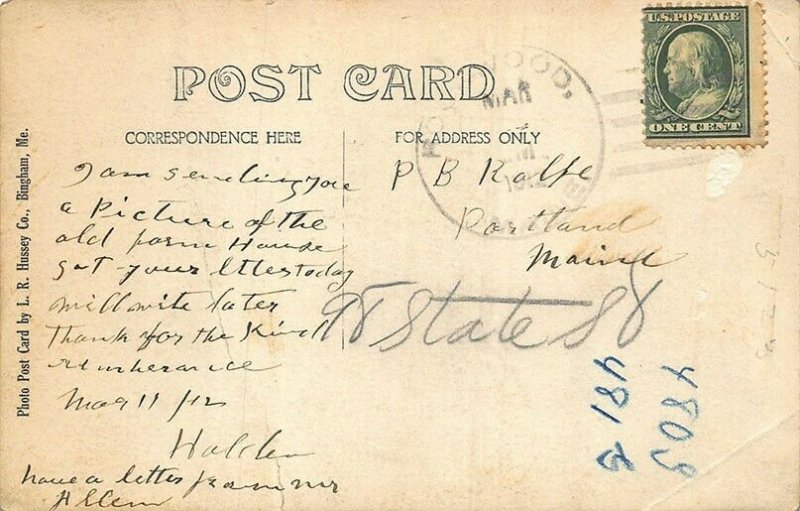 POST CARD
U.S. POSTAGE
ONE CENT
WOOD,
MAR
CORRESPONDENCE HERE
FOR ADDRESS ONLY
Photo Post Card by L. R. Hussey Co., Bingham, Me.
I am sending you
a Picture of the
old farm House
got your letter today
will write later
Thank for the Kind
remberance
Mar 11/12
Holden
have a letter from mr
Allen
P B Rolfe
Portland
Maine
98 State St
4809
481B